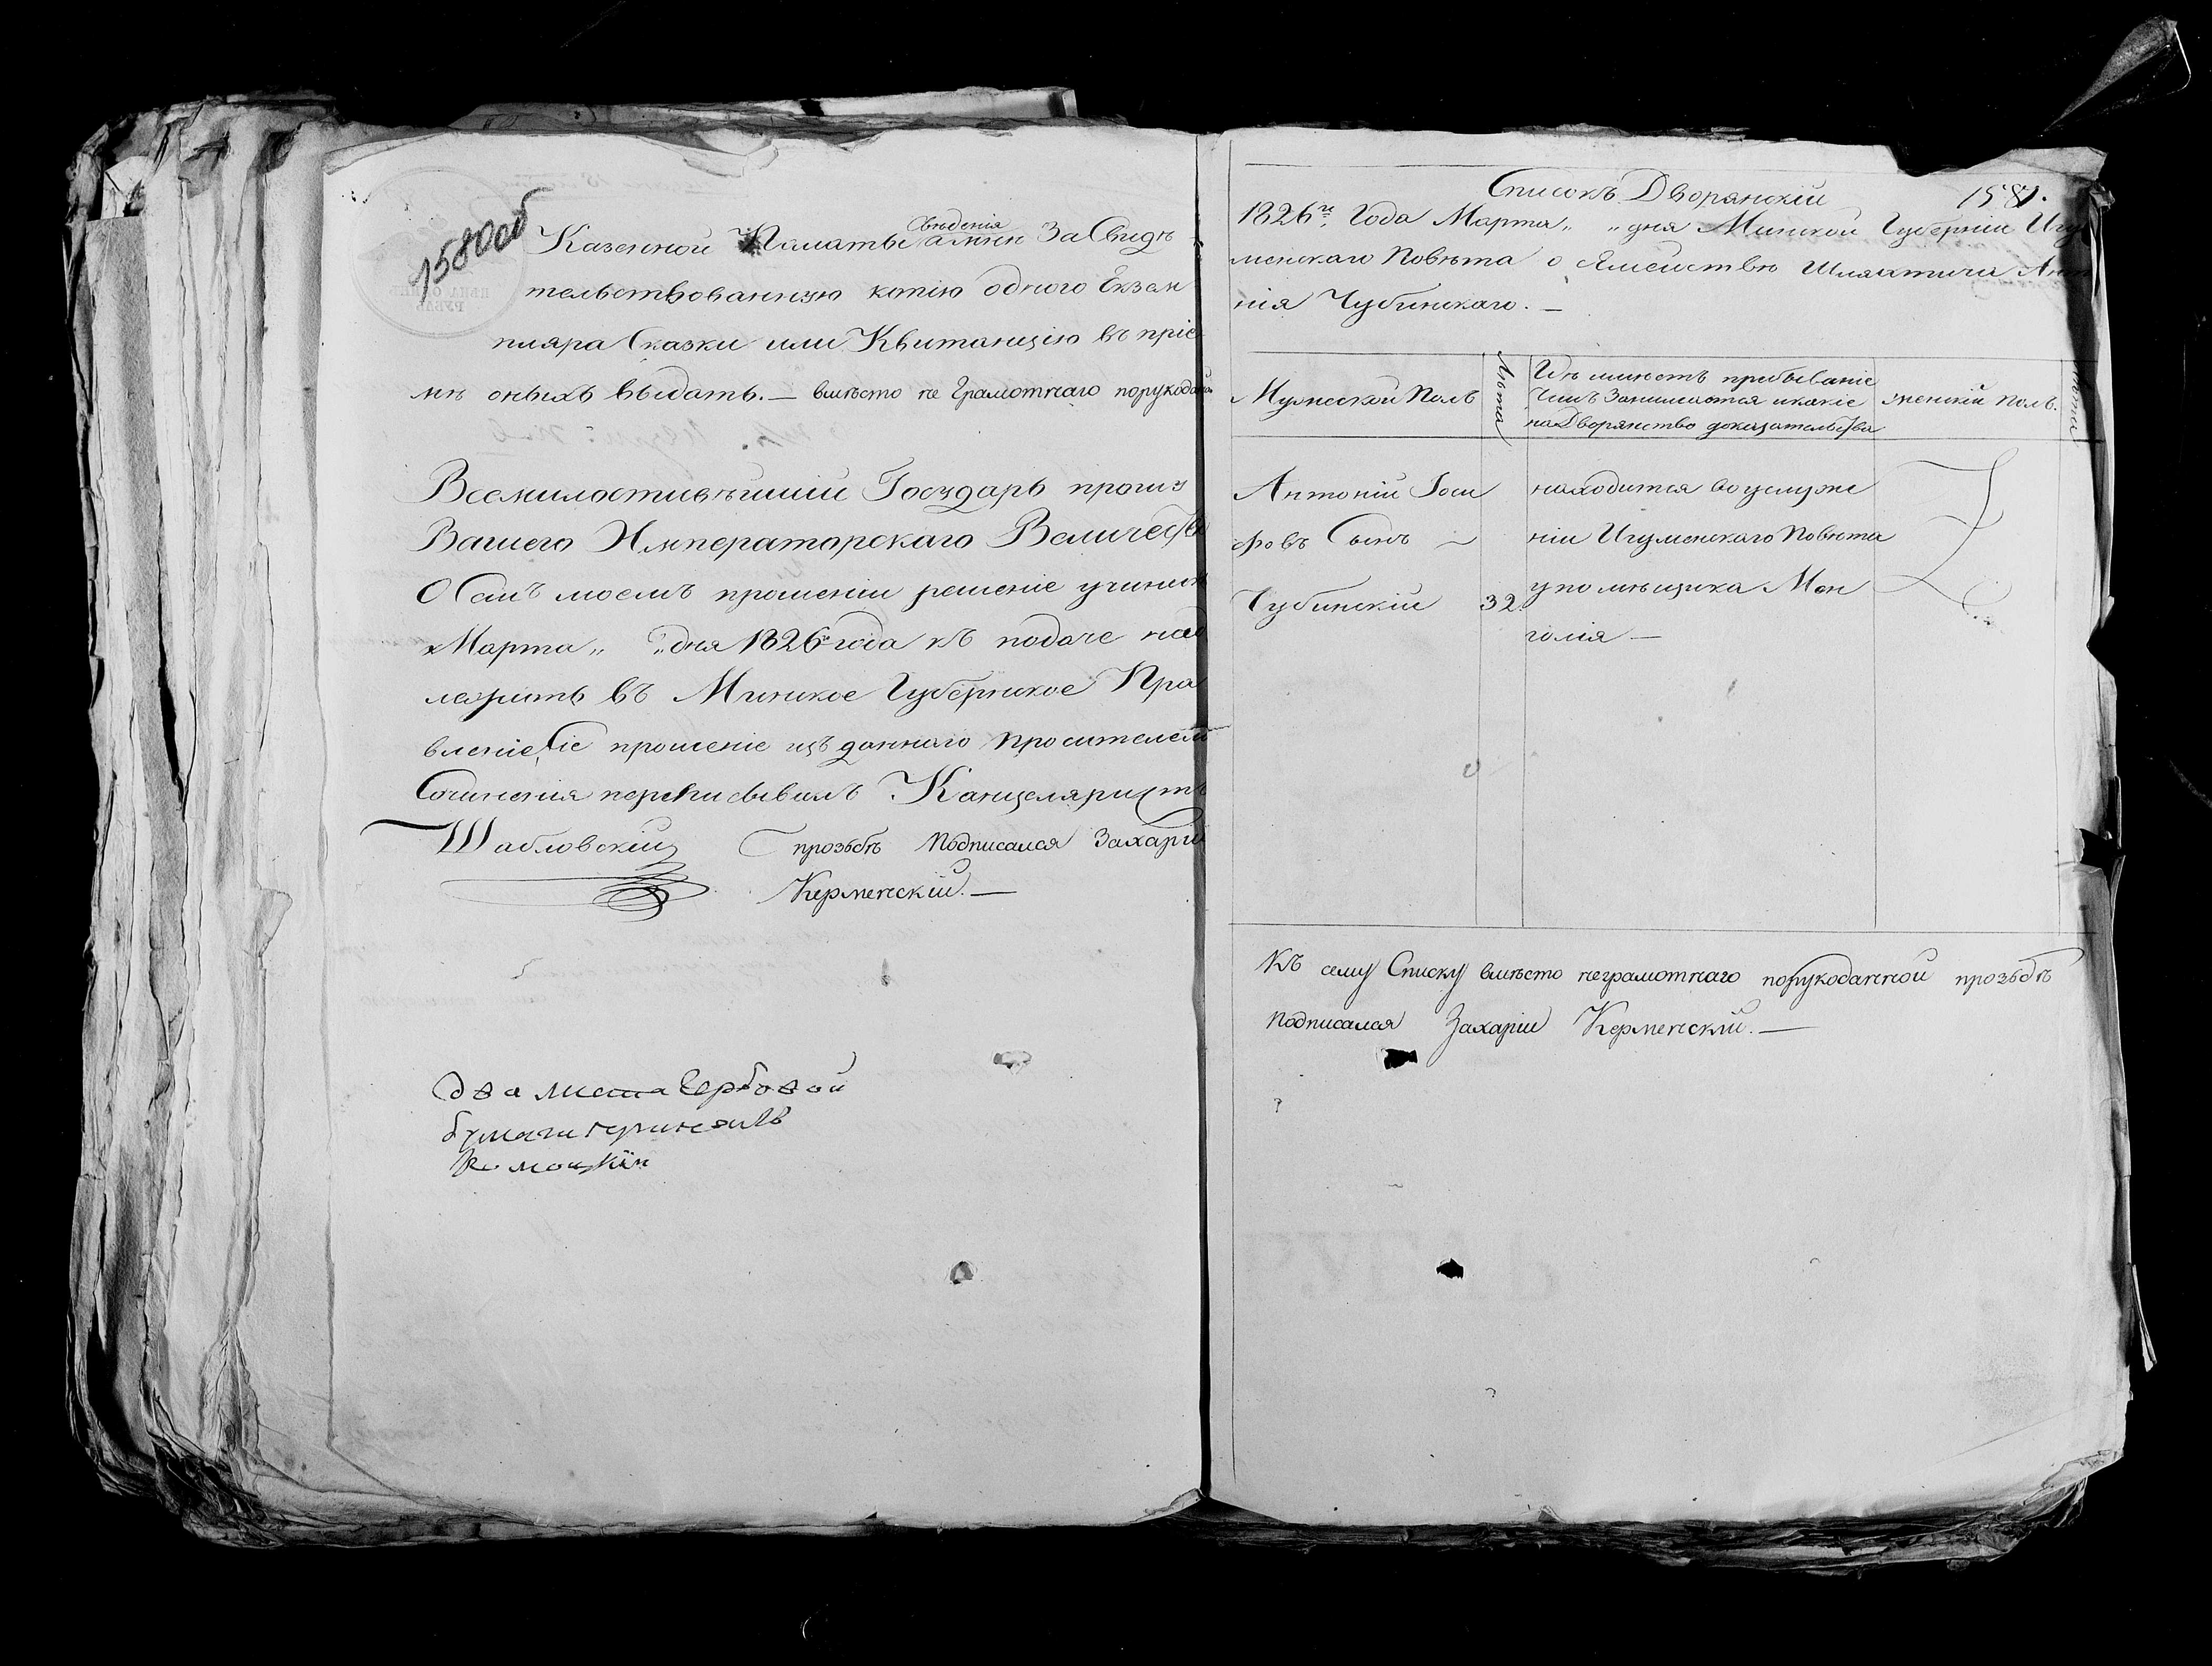 1580об
Казенной Палаты Сведенiя а мнѣ ЗаСвидѣ
тельствованную копiю одного Екзем
пляра Сказки или Квитанцiю въ прiе
мѣ оныхъ выдать. — вместо не Грамотнаго порукоданой
Всемилостивѣйшiй Государь прошу
Вашего Императорскаго Величества
О Семъ моемъ прошенiи решенiе учинить
Марта „ „ дня 1826 года къ подаче над
лежитъ въ Минское Губернское Пра
вленiе, Сiе прошенiе изъ даннаго просителемъ
Сочиненiя переписывалъ Канцеляристъ
Шабловскiй
прозьбѣ Подписался Захарiй
Керменскiй. —
два листа Гербовой
бумаги принялъ
Списокъ Дворянскiй
1581.
1826го Года Марта „ „ дня Минской Губернiи Игу
менскаго Повѣта о Ямействѣ Шляхтича Анто
нiя Чубинскаго. —
Мужеской Полъ
Лѣта
Гдѣ имѣетъ пребыванiе
Чемъ Занимается и какiе
на Дворянство доказательства
женскiй полъ.
Лѣта
Антонiй Iоси
фовъ Сынъ —
Чубинскiй 32.
находится во услуже
нiи Игуменскаго Повѣта
у помѣщика Мон
голiя —
Къ сему Списку вмѣсто неграмотнаго порукоданной прозьбѣ
Подписался Захарiй Керменскiй. —